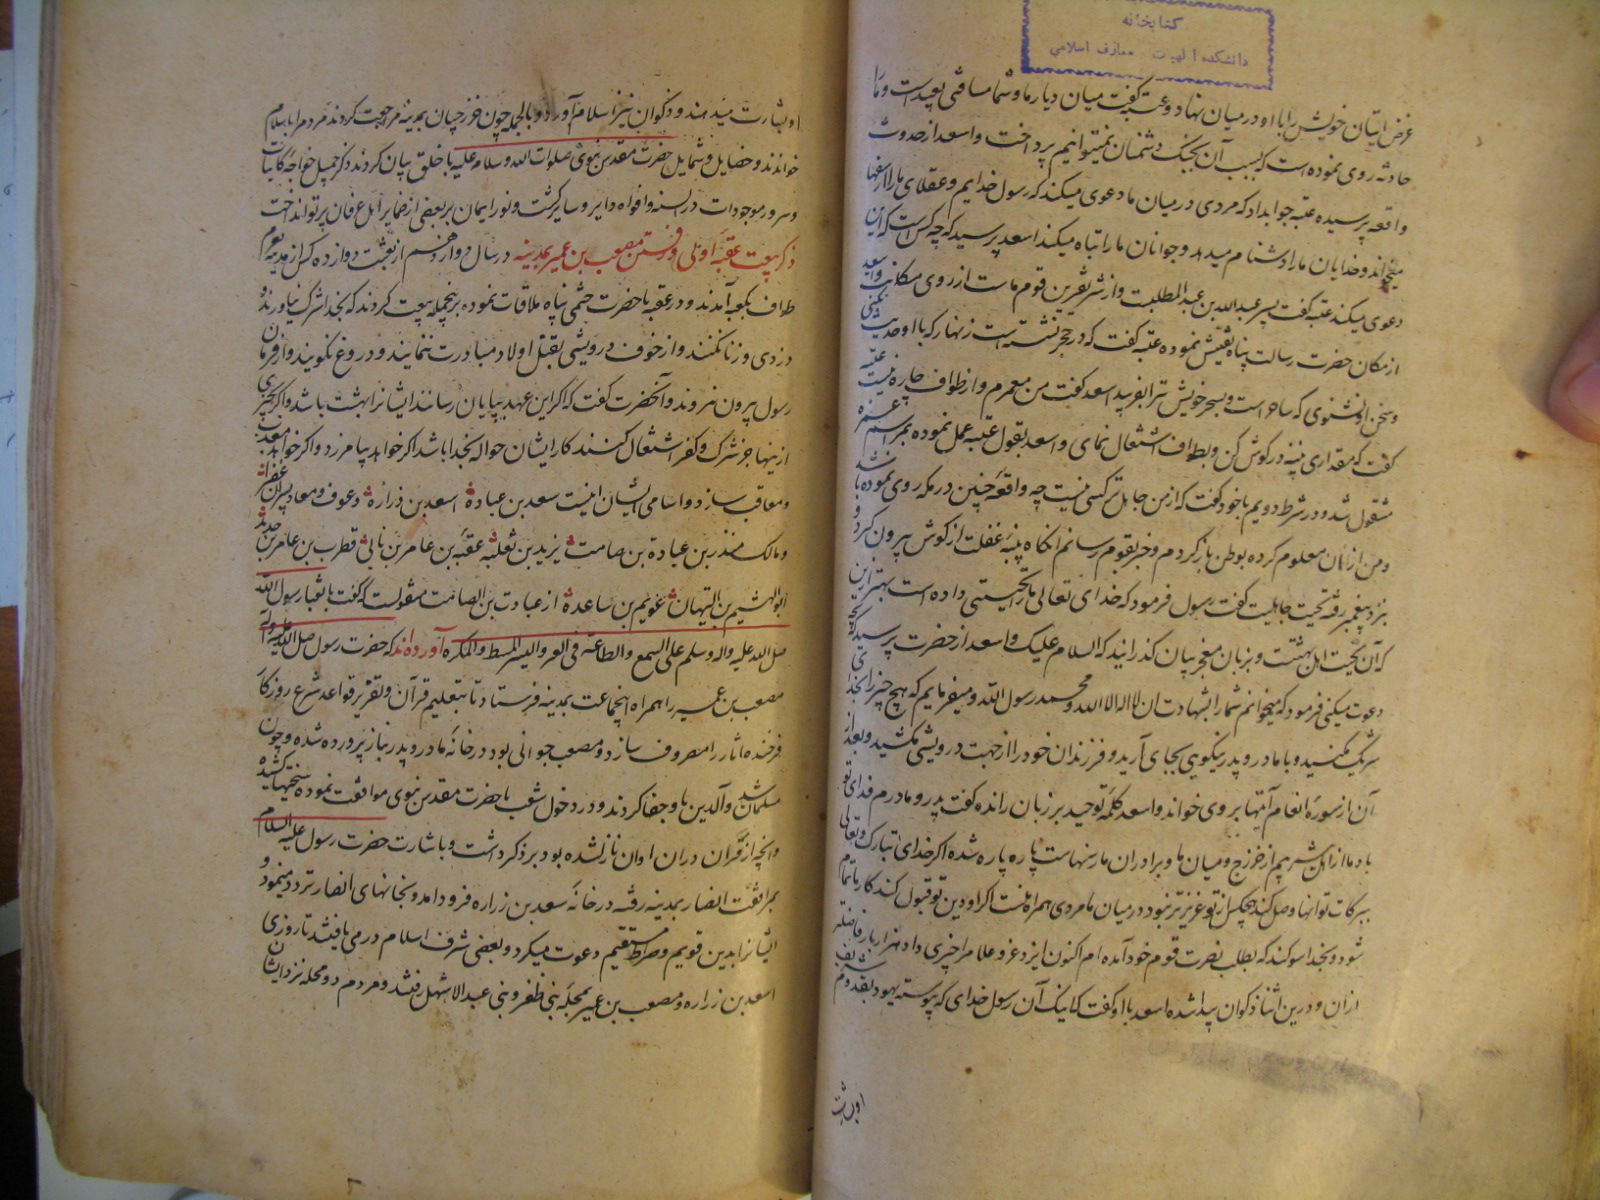 کتابخانه
دانشکده الهیات و معارف اسلامی
غرض ایشان خویش را با او در میان نهاد و عتبه گفت میان دیار ما و شما مسافتی بعید است و ما را
حادثه روی نموده است که بسبب آن بجنگ دشمنان نمیتوانیم پرداخت و اسعد از حدوث
واقعه پرسیده عتبه جواب داد که مردی در میان ما دعوی میکند که رسول خدایم و عقلای ما را از سفها
میخواند و خدایان ما را دشنام میدهد و جوانان ما را تباه میکند اسعد پرسید که چه کس است که این
دعوی میکند عتبه گفت پسر عبدالله بن عبدالمطلبست و از شریفترین قوم ماست از روی مکانت و اسعد
از مکان حضرت رسالت پناه تفتیش نموده عتبه گفت که در حجر نشسته است زنهار که با او حدیث نکنی
و سخن او نشنوی که ساحر است و بسحر خویش ترا بفریبد اسعد گفت من معمرم و از طواف چاره نیست عتبه
گفت که مقداری پنبه در گوش کن و بطواف اشتغال نمای و اسعد بقول عتبه عمل نموده بمراسم عمره
مشغول شد و در شرط دویم با خود گفت که از من جاهل‌تر کسی نیست چه واقعه چنین در مکه روی نموده باشد
و من از آن معلوم کرده بوطن باز گردم و خبر بقوم رسانم آنگاه پنبه غفلت از گوش بیرون کرد و
نزد پیغمبر رفته تحیت جاهلیت گفت رسول فرمود که خدای تعالی ما را تحیتی داده است بهتر ازین
که آن تحیت اهل بهشت و بزبان معجز بیان گذرانید که السلام علیک و اسعد از حضرت پرسید که بچه
دعوت میکنی فرمود که میخوانم شما را بشهادت ان لا اله الا الله و محمد رسول الله و میفرمایم که هیچ چیز را بخدای
شریک نکنید و با مادر و پدر نیکویی بجای آرید و فرزندان خود را از جهت درویشی مکشید و بعد از
آن از سوره انعام آیتها بر وی خواند و اسعد کلمه توحید بر زبان رانده گفت پدر و مادرم فدای تو
باد ما از اهل یثربیم از خزرج و میان ما و برادران ما رسنهاست پاره پاره شده اگر خدای تبارک و تعالی
ببرکات تو آنها وصل کند هیچکس از تو عزیزتر نبود در میان ما مردی همراه منست اگر او دین تو قبول کند کار ما تمام
شود و بخدا سوگند که بطلب نصرت قوم خود آمده‌ام اکنون ایزد عز و علا مرا چیزی داد هزار بار فاضلتر
از آن و درین اثنا ذکوان پیدا شده اسعد با او گفت که اینک آن رسول خدای که پیوسته یهود بقدوم شریف
او بشارت
او بشارت میدهند و ذکوان نیز اسلام آورد و بالجمله چون خزرجیان بمدینه مراجعت کردند مردم را باسلام
خواندند و خصایل و شمایل حضرت مقدس نبوی صلوات الله و سلامه علیه با خلق بیان کردند ذکر جمیل خواجه کاینات
و سرور موجودات در السنه و افواه دایر و سایر گشت و نور ایمان بر بعضی از ضمایر اهل عرفان پرتو انداخت
ذکر بیعت عقبه اولی و رفتن مصعب بن عمیر بمدینه در سال دوازدهم از بعثت دوازده کس از مدینه بعزم
طواف بکعبه آمدند و در عقبه با حضرت ختمی پناه ملاقات نموده برینجمله بیعت کردند که بخدا شرک نیاورند و
دزدی و زنا نکنند و از خوف درویشی بقتل اولاد مبادرت ننمایند و دروغ نگویند و از فرمان
رسول بیرون نروند و آنحضرت گفت که اگر این عهد بپایان رسانند ایشانرا بهشت باشد و اگر بچیزی
ازینها جز شرک و کفر اشتغال کنند کار ایشان حواله بخدا باشد اگر خواهد بیامرزد و اگر خواهد معذب
و معاقب سازد و اسامی ایشان اینست سعد بن عباده اسعد بن زراره و عوف و معاذ پسران عفرا
و مالک منذر بن عباده بن صامت یزید بن ثعلبه عقبه بن عامر بن نابی قطبه بن عامر بن حدیده
ابو الهیثم بن التیهان عویم بن ساعده از عبادت بن الصامت منقولست که گفت بایعنا رسول الله
صلی الله علیه و آله و سلم علی السمع و الطاعة فی العسر و الیسر و المنشط و المکره آورده‌اند که حضرت رسول صلی الله علیه و آله
مصعب بن عمیر را همراه اینجماعت بمدینه فرستاد تا بتعلیم قرآن و تقریر قواعد شرع روزگار
فرخنده آثار را مصروف سازد و مصعب جوانی بود در خانه مادر و پدر بناز پرورده شده و چون
مسلمان شد والدین با او جفا کردند و در دخول شعب با حضرت مقدس نبوی موافقت نموده سختیها کشیده
و آنچه از قرآن در آن اوان نازل شده بود بر ذکر داشت و باشارت حضرت رسول علیه السلام
بمرافقت انصار بمدینه رفته در خانه سعد بن زراره فرود آمد و بخانهای انصار تردد مینمود و
ایشانرا بدین قویم و صراط مستقیم دعوت میکرد و بعضی شرف اسلام در می یافتند تا روزی
اسعد بن زراره و مصعب بن عمیر بمحله بنی ظفر و بنی عبدالاشهل رفتند و مردم دو محله نزد ایشان